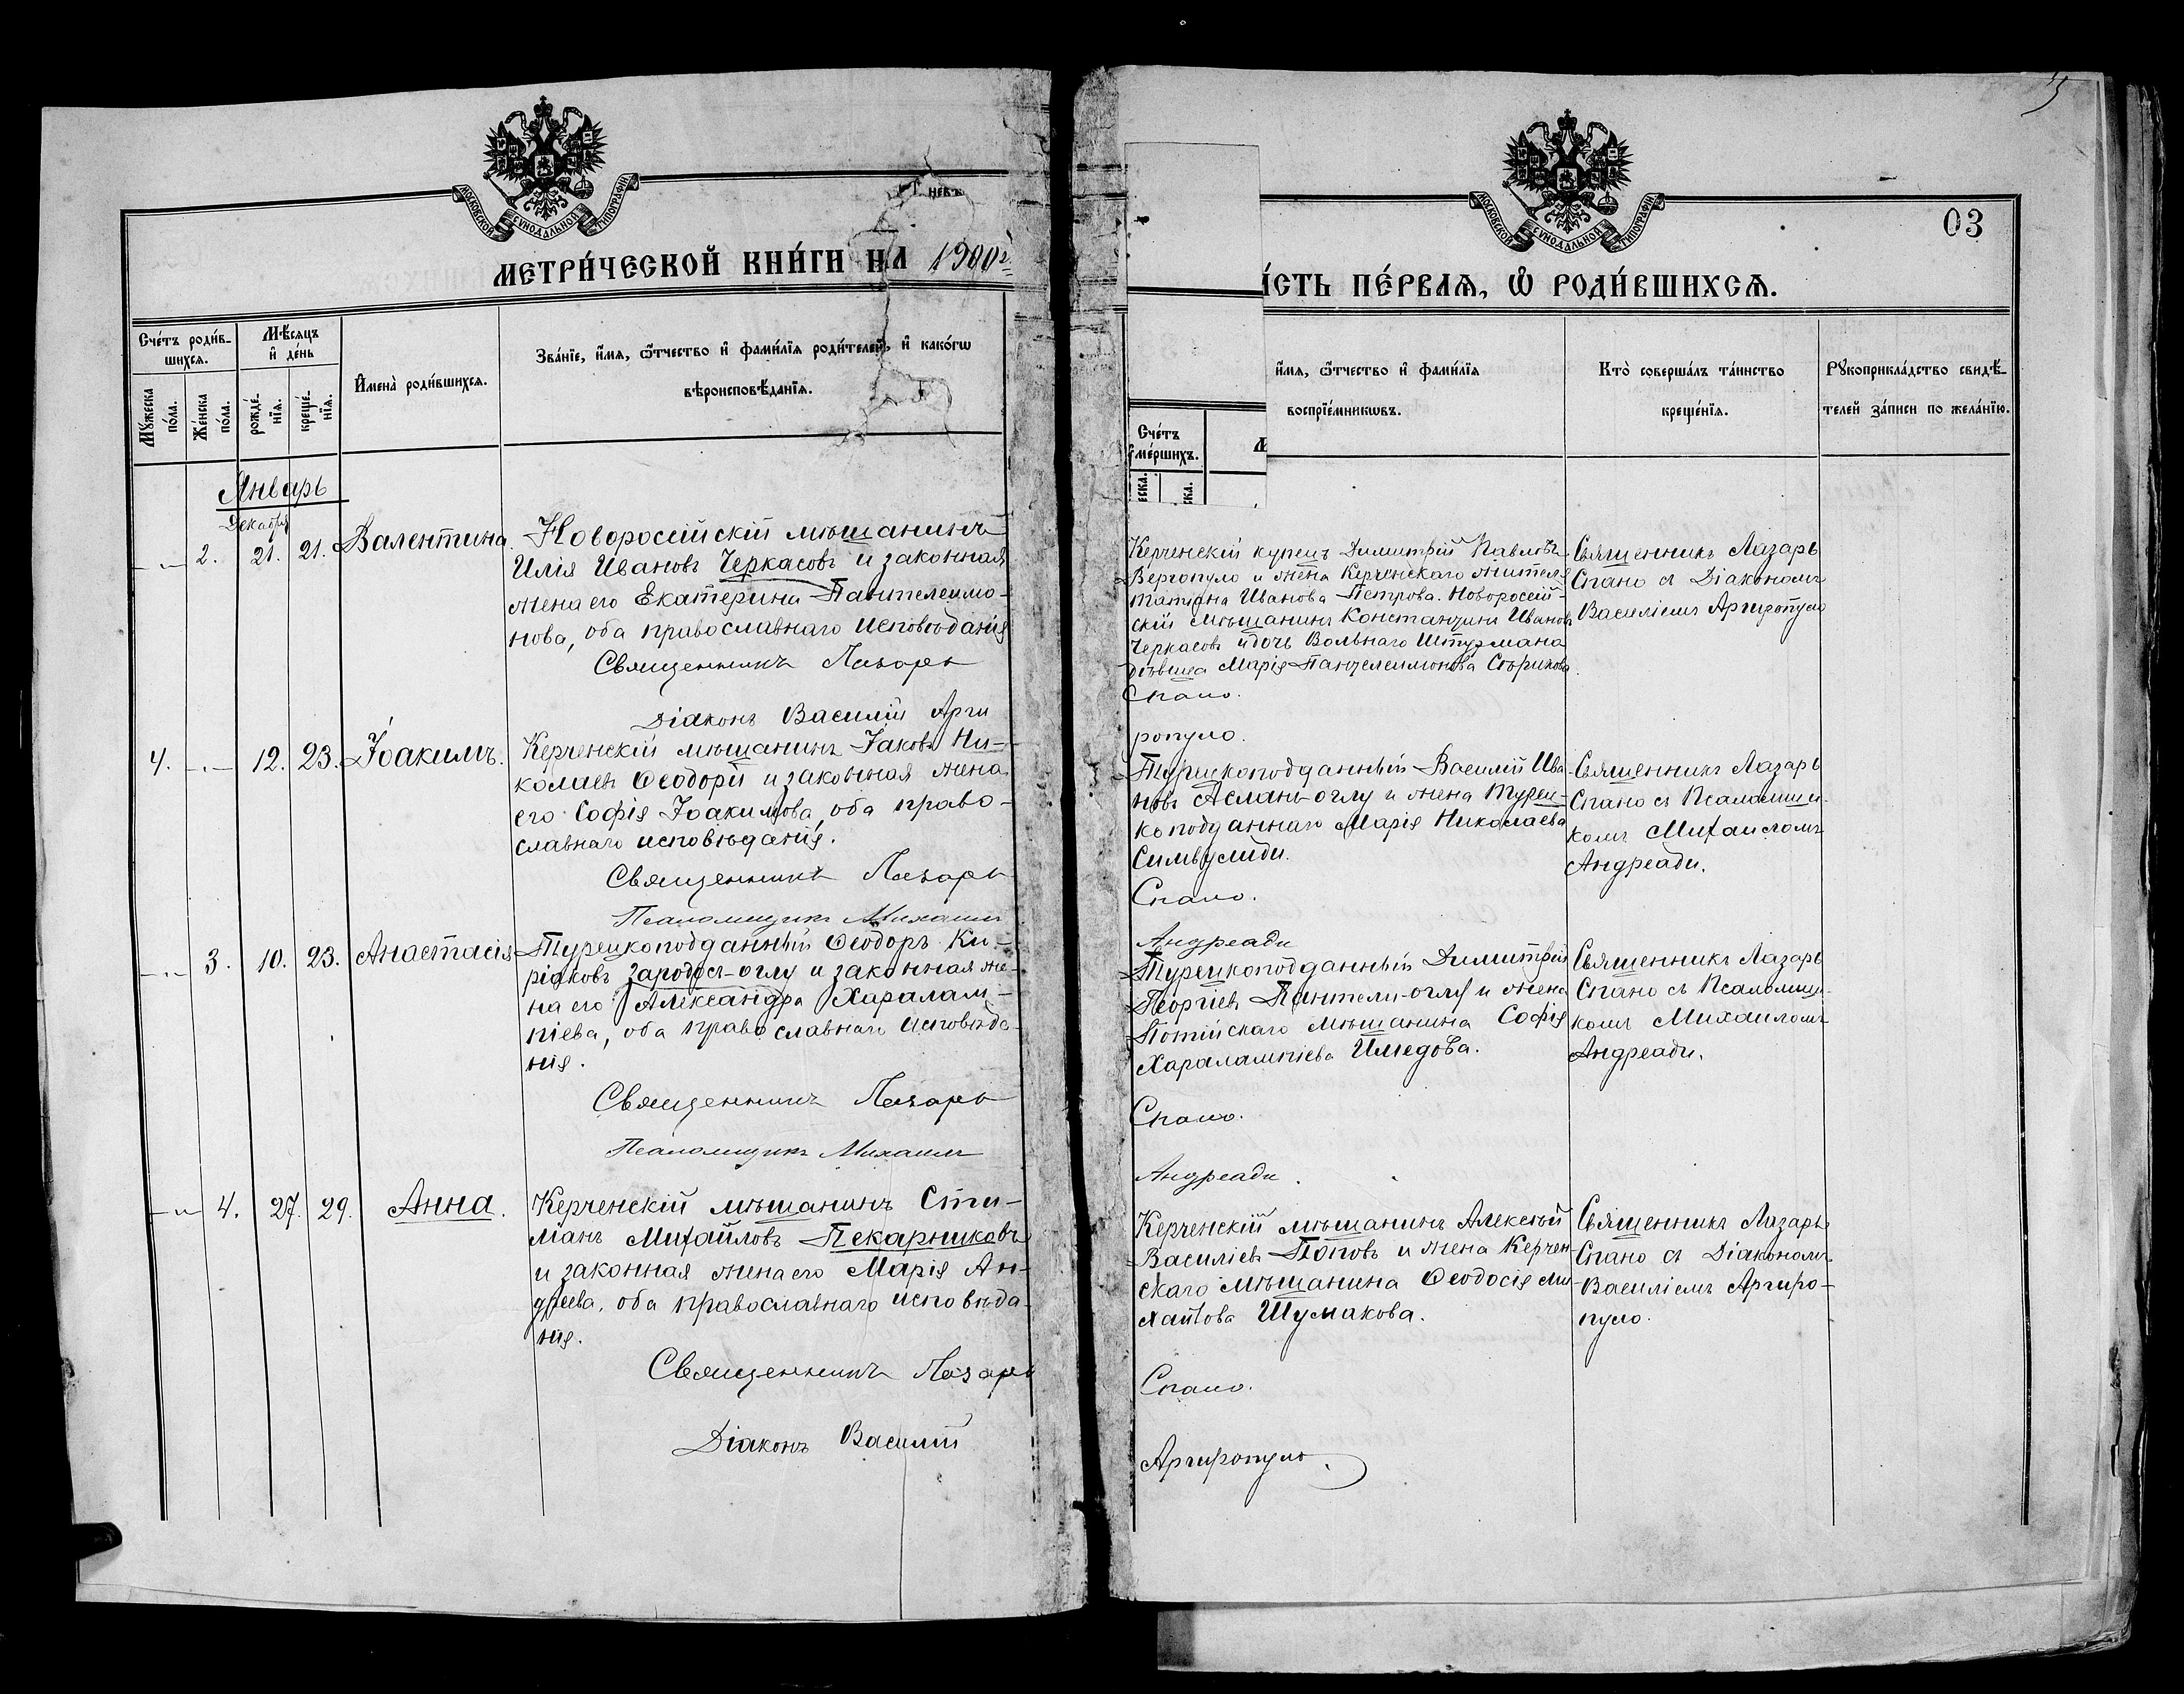 5
03
МОСКОВСКОЙ СѴНОДАЛЬНОЙ ТИПОГРАФІИ
МЕТРИ́ЧЕСКОЙ КНИ́ГИ НА 1900 г.
Сче́тъ роди́в-
шихсѧ.
Мѣ́сѧцъ
и҆ де́нь
Мꙋ́жеска
по́ла.
Же́нска
по́ла.
рожде́-
нїѧ.
креще́-
нїѧ.
И҆мена̀ роди́вшихсѧ.
Зва́нїе, и҆́мѧ, ѻ҆́тчество и҆ фами́лїѧ роди́телей, и҆ како́гѡ
вѣроисповѣ́данїѧ.
Январь
Декабря
2. 21. 21. Валентина.
Новороссійскій мѣщанинъ
Илія Ивановъ Черкасовъ и законная
жена его Екатерина Пантелеимо-
нова, оба православнаго исповѣданія
Священникъ Лазарь
Діаконъ Василій Арги
4. 12. 23. Іоакимъ.
Керченскій мѣщанинъ Іаковъ Ни-
колаевъ Ѳеодори и законная жена
его Софія Іоакимова, оба право-
славнаго исповѣданія.
Священникъ Лазарь
Псаломщикъ Михаилъ
3. 10. 23. Анастасія
Турецкоподданный Ѳеодоръ Ки-
ріяковъ Зародосъ-оглу и законная же-
на его Александра Харалам-
піева, оба православнаго исповѣда-
нія.
Священникъ Лазарь
Псаломщикъ Михаилъ
4. 27. 29. Анна.
Керченскій мѣщанинъ Сти-
ліанъ Михайловъ Пекарниковъ
и законная жена его Марія Ан-
дреева, оба православнаго исповѣда-
нія.
Священникъ Лазарь
Діаконъ Василій
МОСКОВСКОЙ СѴНОДАЛЬНОЙ ТИПОГРАФІИ
СТЬ ПЕ́РВАѦ, Ѡ҆ РОДИ́ВШИХСѦ.
Сче́тъ
ᲂу҆ме́ршихъ.
и҆́мѧ, ѻ҆́тчество и҆ фами́лїѧ
воспрїе́мникѡвъ.
Кто̀ соверша́лъ та́инство
креще́нїѧ.
Рꙋкоприкла́дство свидѣ́-
телей за́писи по жела́нїю.
Керченскій купецъ Димитрій Павловъ
Вергопуло и жена Керченскаго жителя
Татіана Иванова Петрова. Новороссій-
скій мѣщанинъ Константинъ Ивановъ
Черкасовъ и дочь Вольнаго Штурмана
дѣвица Марія Пантелеимонова Сѣрикова.
Спано.
ропуло.
Священникъ Лазарь
Спано съ Діакономъ
Василіемъ Аргиропуло
Турецкоподданный Василій Ива-
новъ Асланъ-оглу и жена турец-
коподданнаго Марія Николаева
Симвулиди.
Спано.
Андреади
Священникъ Лазарь
Спано съ Псаломщи-
комъ Михаиломъ
Андреади.
Турецкоподданный Димитрій
Георгіевъ Пантели-оглу и жена
Потійскаго мѣщанина Софія
Харалампіева Имедова.
Спано.
Андреади.
Священникъ Лазарь
Спано съ Псаломщи-
комъ Михаиломъ
Андреади.
Керченскій мѣщанинъ Алексѣй
Василіевъ Поповъ и жена Керчен
скаго мѣщанина Ѳеодосія Ми-
хайлова Шумакова.
Спано.
Аргиропуло.
Священникъ Лазарь
Спано съ Діакономъ
Василіемъ Аргиро-
пуло.